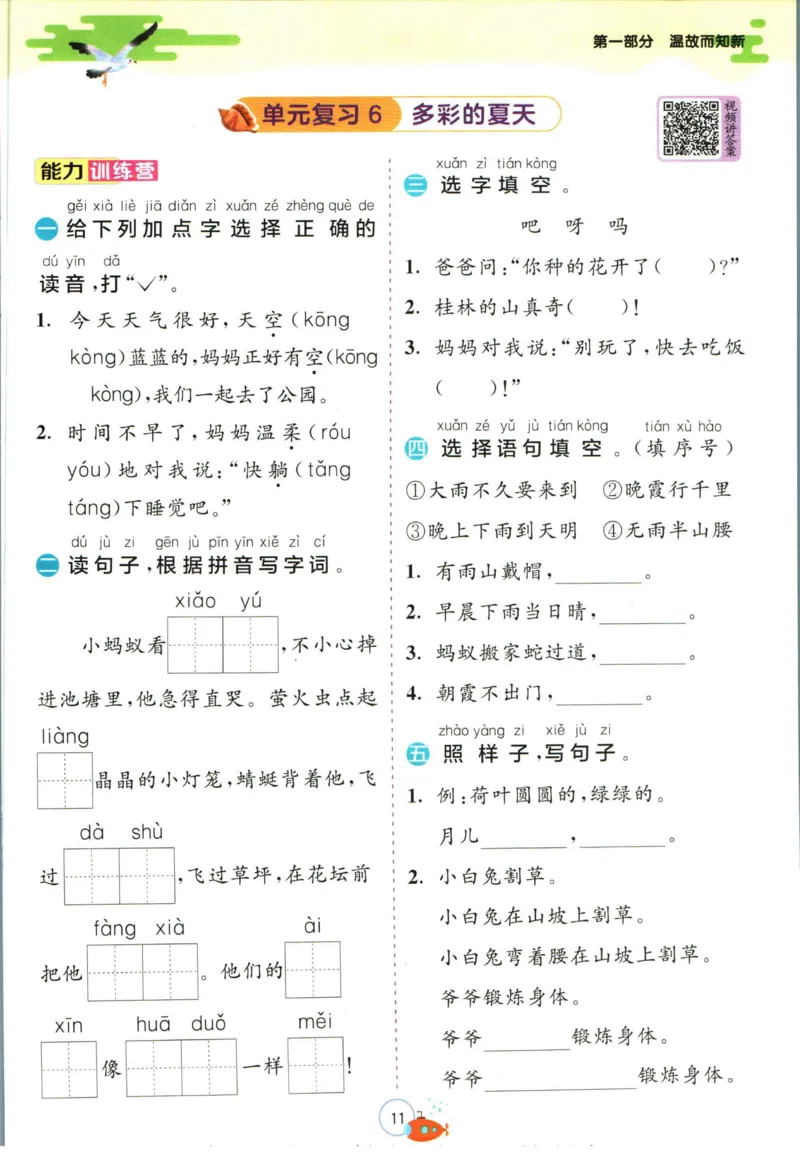 第一部分 温故而知新
单元复习6 多彩的夏天
视频讲答案
能力训练营
gěi xià liè jiā diǎn zì xuǎn zé zhèng què de
一 给下列加点字选择正确的
dú yīn dǎ
读音,打“✓”。
1. 今天天气很好,天空(kōng
kòng)蓝蓝的,妈妈正好有空(kōng
kòng),我们一起去了公园。
2. 时间不早了,妈妈温柔(róu
yóu)地对我说:“快躺(tǎng
táng)下睡觉吧。”
dú jù zi gēn jù pīn yīn xiě zì cí
二 读句子,根据拼音写字词。
xiǎo yú
小蚂蚁看 ,不小心掉
进池塘里,他急得直哭。萤火虫点起
liàng
晶晶的小灯笼,蜻蜓背着他,飞
dà shù
过 ,飞过草坪,在花坛前
fàng xià ài
把他 。他们的
xīn huā duǒ měi
像 一样 !
xuǎn zì tián kòng
三 选字填空。
吧 呀 吗
1. 爸爸问:“你种的花开了( )?”
2. 桂林的山真奇( )!
3. 妈妈对我说:“别玩了,快去吃饭
( )!”
xuǎn zé yǔ jù tián kòng tián xù hào
四 选择语句填空。(填序号)
①大雨不久要来到 ②晚霞行千里
③晚上下雨到天明 ④无雨半山腰
1. 有雨山戴帽,________。
2. 早晨下雨当日晴,________。
3. 蚂蚁搬家蛇过道,________。
4. 朝霞不出门,________。
zhào yàng zi xiě jù zi
五 照样子,写句子。
1. 例:荷叶圆圆的,绿绿的。
月儿________,________。
2. 小白兔割草。
小白兔在山坡上割草。
小白兔弯着腰在山坡上割草。
爷爷锻炼身体。
爷爷________锻炼身体。
爷爷______________锻炼身体。
11